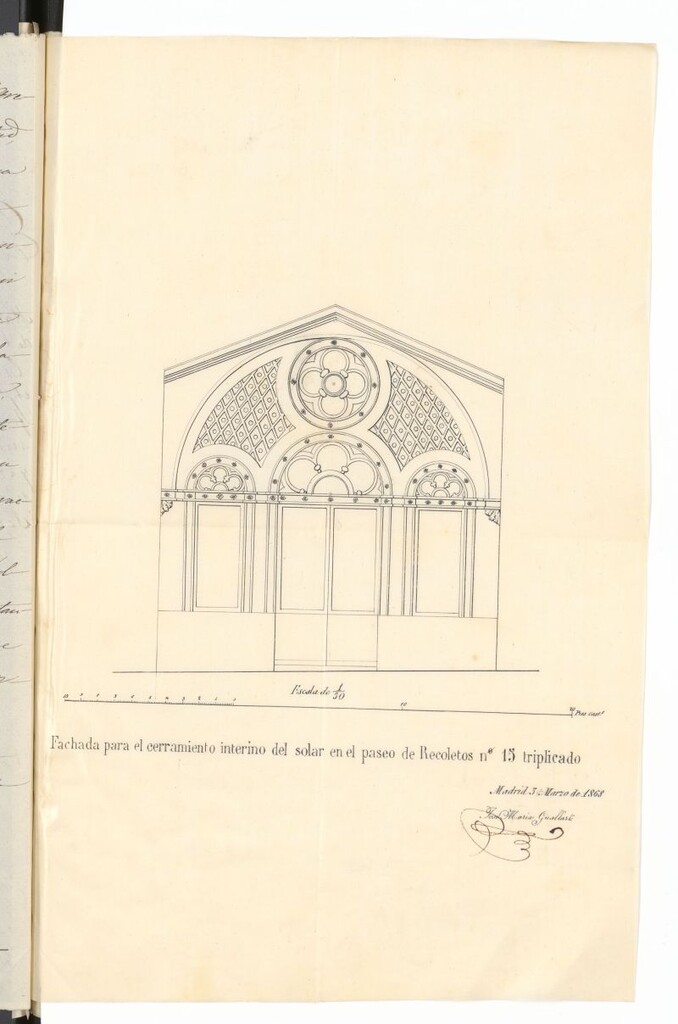 Escala de 1/50
Pies cast.s
Fachada para el cerramiento interino del solar en el paseo de Recoletos nº 15 triplicado
Madrid 3 Marzo de 1868
José Maria Guallart